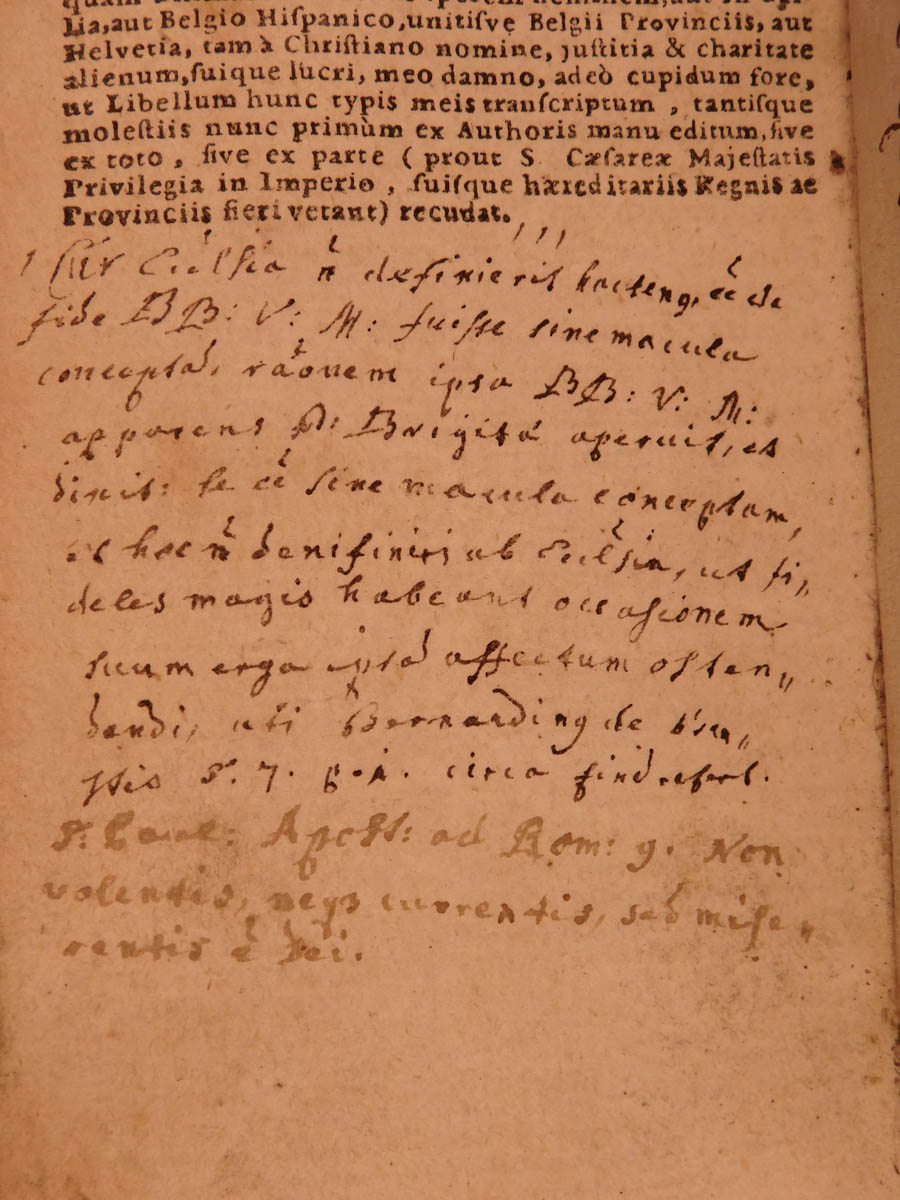 lia, aut Belgio Hiſpanico, unitiſve Belgii Provinciis, aut
Helvetia, tam à Chriſtiano nomine, juſtitia & charitate
alienum, ſuique lucri, meo damno, adeò cupidum fore,
ut Libellum hunc typis meis tranſcriptum, tantiſque
moleſtiis nunc primùm ex Authoris manu editum, ſive
ex toto, ſive ex parte (prout S Cæſareæ Majeſtatis
Privilegia in Imperio, ſuiſque hæreditariis Regnis ac
Provinciis fieri vetant) recudat.
Cur Ecclsia n̄ definierit hactenq, eē de
fide BB: V: M: fuisse sine macula
conceptā, rāonem ipsa BB: V: M:
apparens D: Brigitā aperuit, et
dixit: se eē sine macula conceptam,
et hoc n̄ denifiniri ab Ecclsia, ut fi,,
deles magis habeant occasionem
suum erga ipsā affectum osten,,
dendi, uti Bernardinq de
circa finē refert.
S. Paul: Apost: ad Rom: 9. Non
volentis, neqз currentis, sed mise,,
rentis ē Dei.